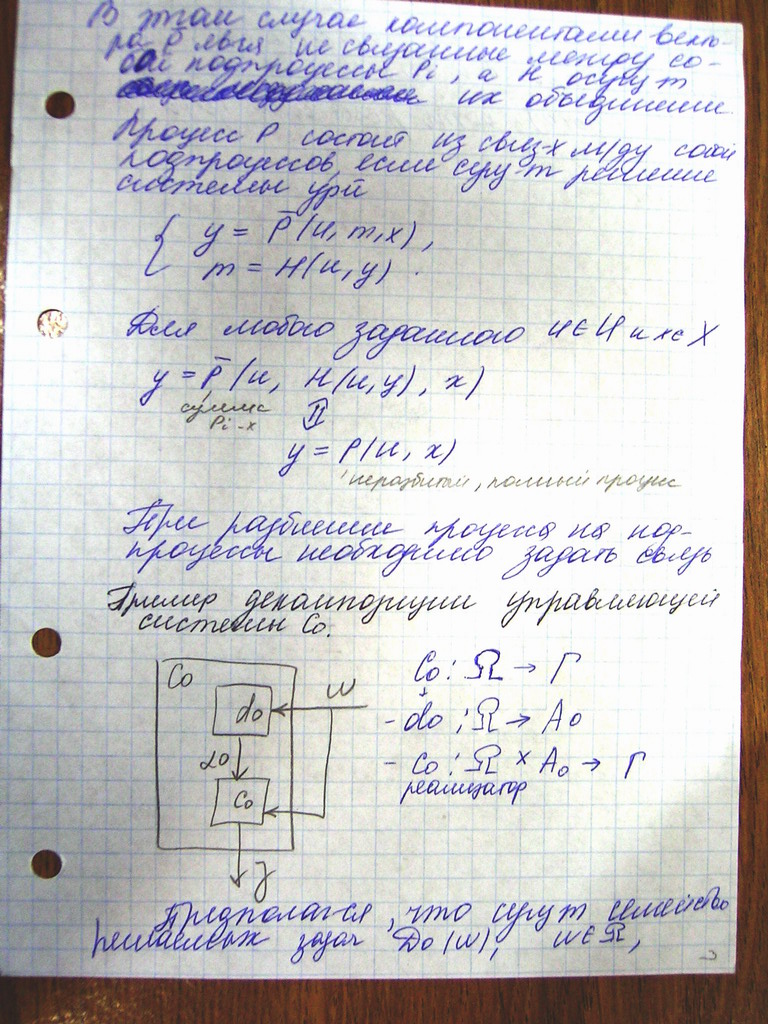 В этом случае компонентами векто-
ра P̄ явл-ся не связанные между со-
бой подпроцессы Pi, а H осущ-т
их объединение
Процесс P состоит из связ-х м/ду собой
подпроцессов, если сущ-т решение
системы ур-й
{ y = P̄(u, m, x),
m = H(u, y).
Для любого заданного u ∈ U и x ∈ X
y = P̄(u, H(u, y), x)
сумма
Pi-х
⇓
y = P(u, x)
неразбитый, полный процесс
При разбиении процесса на под-
процессы необходимо задать связь
Пример декомпозиции управляющей
системы C0.
C0
d0
ω
α0
c0
γ
C0 : Ω → Γ
- d0 : Ω → A0
- c0 : Ω × A0 → Γ
реализатор
Предполагается, что сущ-ют семейство
решаемых задач D0(ω), ω ∈ Ω,